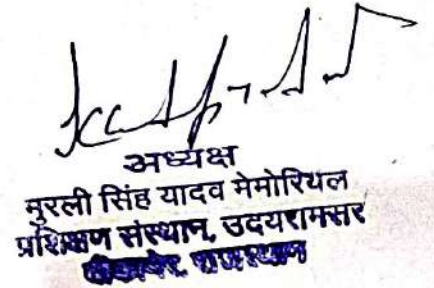 अध्यक्ष
मुरली सिंह यादव मेमोरियल
प्रशिक्षण संस्थान, उदयरामसर
बीकानेर, राजस्थान